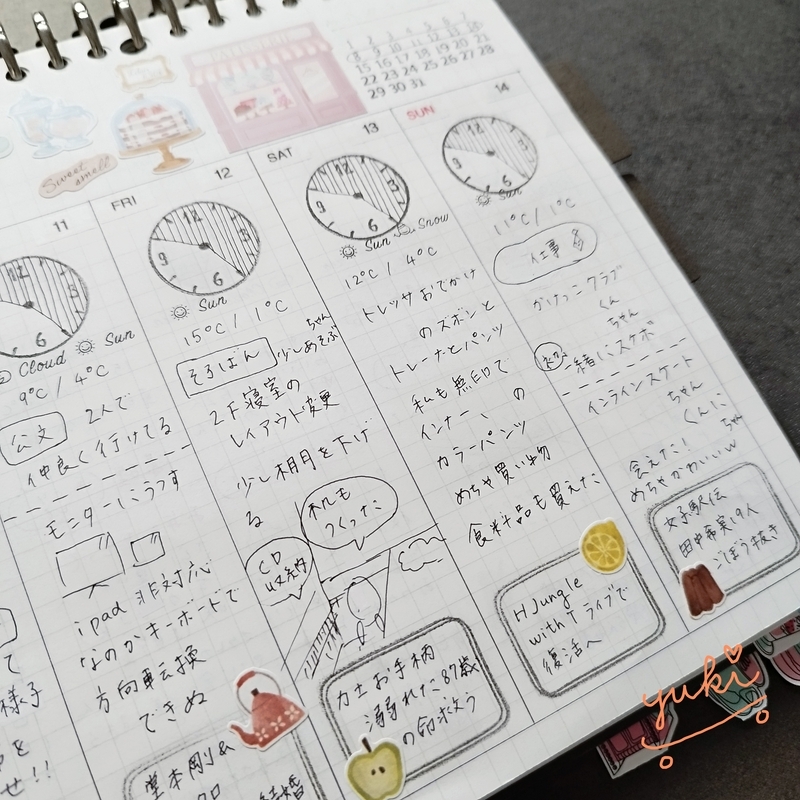 1 2 3 4 5 6 7
8 9 10 11 12 13 14
15 16 17 18 19 20 21
22 23 24 25 26 27 28
29 30 31
Sweet
smell
11
12
6
Cloud Sun
9℃ / 4℃
公文 2人で
仲良く行けてる
モニターにうつす
ipad 非対応
なのかキーボードで
方向転換
できぬ
て
様子
を
せ!!
FRI
12
12
3
6
Sun
15℃ / 1℃
ちゃん
そろばん 少しあそぶ
2F寝室の
レイアウト変更
少し棚を下げ
る
机も
つくった
CD
収納
堂本剛&
結婚
力士お手柄
溺れた87歳
の命救う
SAT
13
12
3
6
Sun Snow
12℃ / 4℃
トレッサおでかけ
のズボンと
トレーナとパンツ
私も無印で
インナー、の
カラーパンツ
めちゃ買い物
食料品も買えた
H Jungle
with T ライブで
復活へ
SUN
14
12
3
6
Sun
11℃ / 1℃
仕事
かけっこクラブ
くん
ちゃん
一緒にスケボ
インラインスケート
ちゃん
くんに
会えた!
めちゃかわいいw
女子駅伝
田中希実19人
ごぼう抜き
yuki